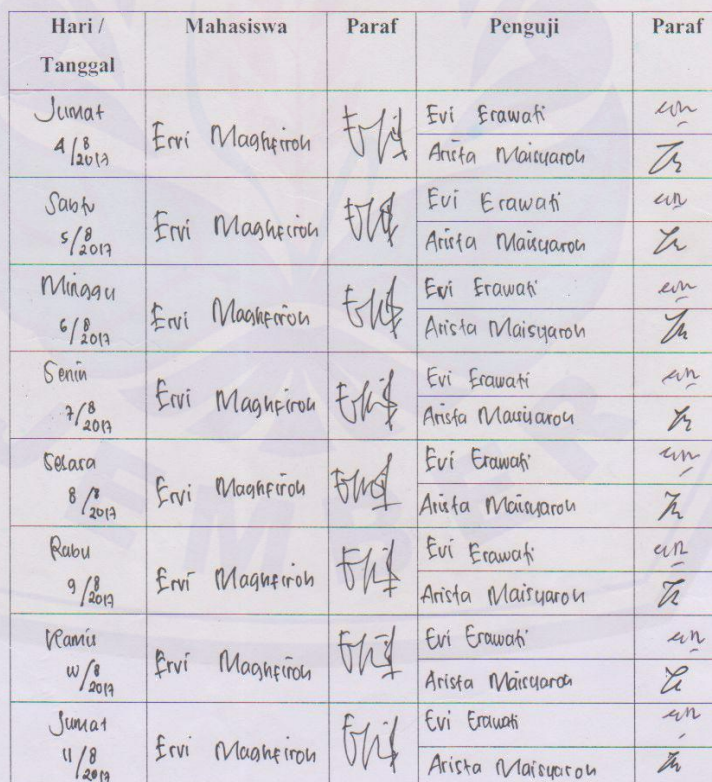 Hari / Tanggal Mahasiswa Paraf Penguji Paraf
Jumat 4/8 2017 Ervi Maghfiroh Evi Erawati
Arista Maisyaroh
Sabtu 5/8 2017 Ervi Maghfiroh Evi Erawati
Arista Maisyaroh
Minggu 6/8 2017 Ervi Maghfiroh Evi Erawati
Arista Maisyaroh
Senin 7/8 2017 Ervi Maghfiroh Evi Erawati
Arista Maisyaroh
Selasa 8/8 2017 Ervi Maghfiroh Evi Erawati
Arista Maisyaroh
Rabu 9/8 2017 Ervi Maghfiroh Evi Erawati
Arista Maisyaroh
Kamis 10/8 2017 Ervi Maghfiroh Evi Erawati
Arista Maisyaroh
Jumat 11/8 2017 Ervi Maghfiroh Evi Erawati
Arista Maisyaroh
JEMBER